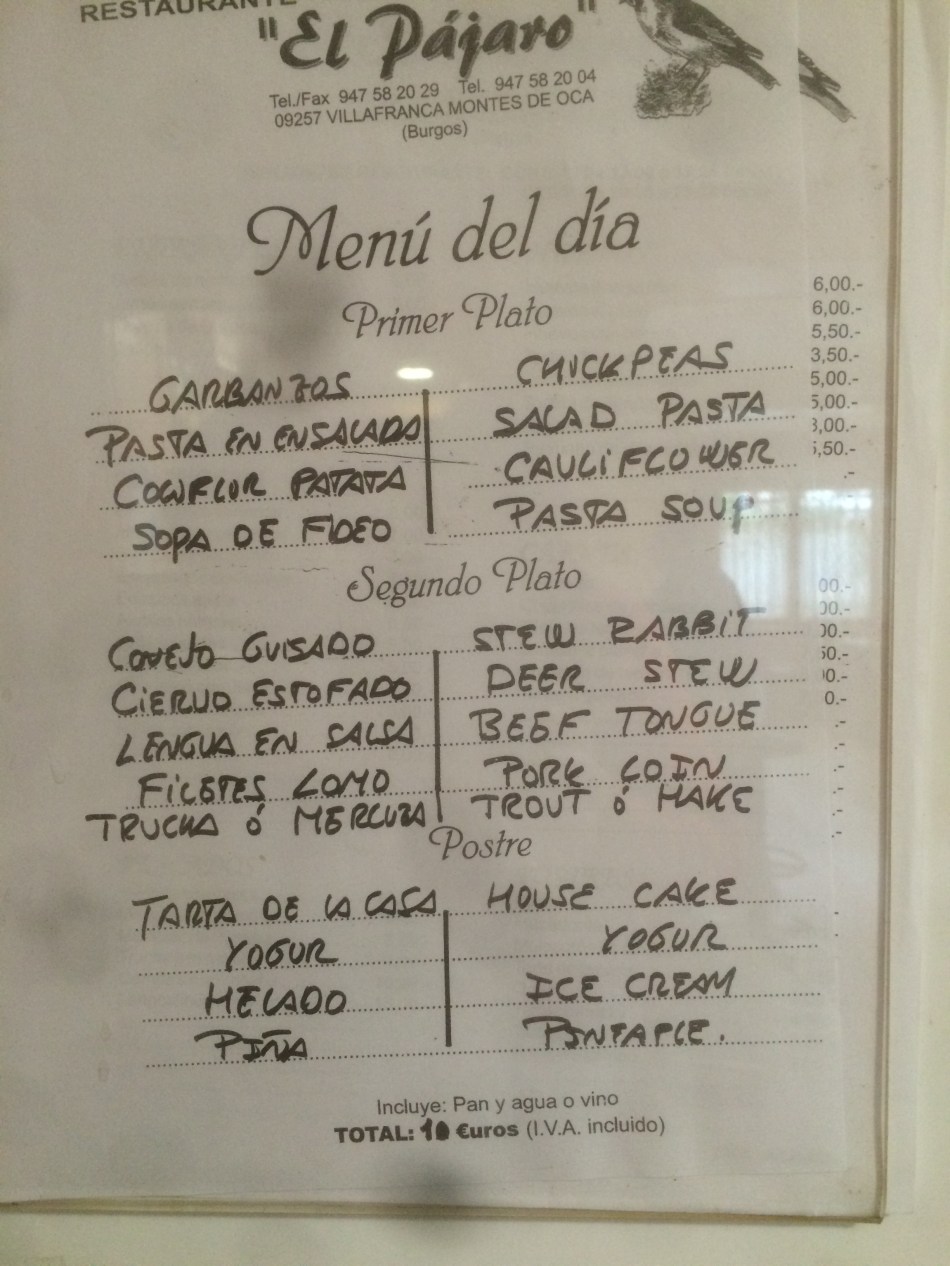 RESTAURANTE
"El Pájaro"
Tel./Fax 947 58 20 29 Tel. 947 58 20 04
09257 VILLAFRANCA MONTES DE OCA
(Burgos)
Menú del día
Primer Plato
GARBANZOS CHICKPEAS
PASTA EN ENSALADA SALAD PASTA
COLIFLOR PATATA CAULIFLOWER
SOPA DE FIDEO PASTA SOUP
Segundo Plato
CONEJO GUISADO STEW RABBIT
CIERVO ESTOFADO DEER STEW
LENGUA EN SALSA BEEF TONGUE
FILETES LOMO PORK LOIN
TRUCHA ó MERLUZA TROUT ó HAKE
Postre
TARTA DE LA CASA HOUSE CAKE
YOGUR YOGUR
HELADO ICE CREAM
PIÑA PINEAPLE.
Incluye: Pan y agua o vino
TOTAL: 10 €uros (I.V.A. incluido)
6,00.-
6,00.-
5,50.-
3,50.-
5,00.-
5,00.-
3,00.-